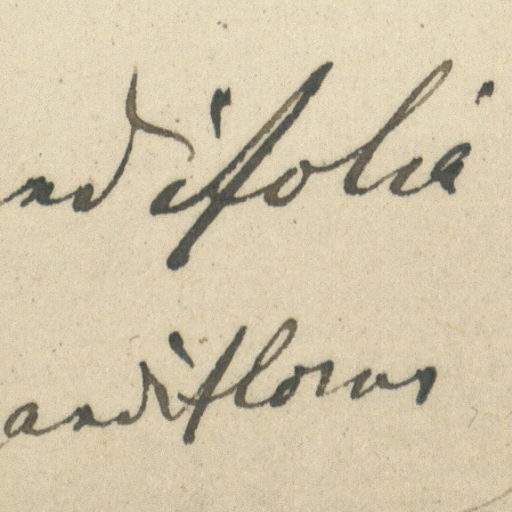 ndifolia
andiflorus